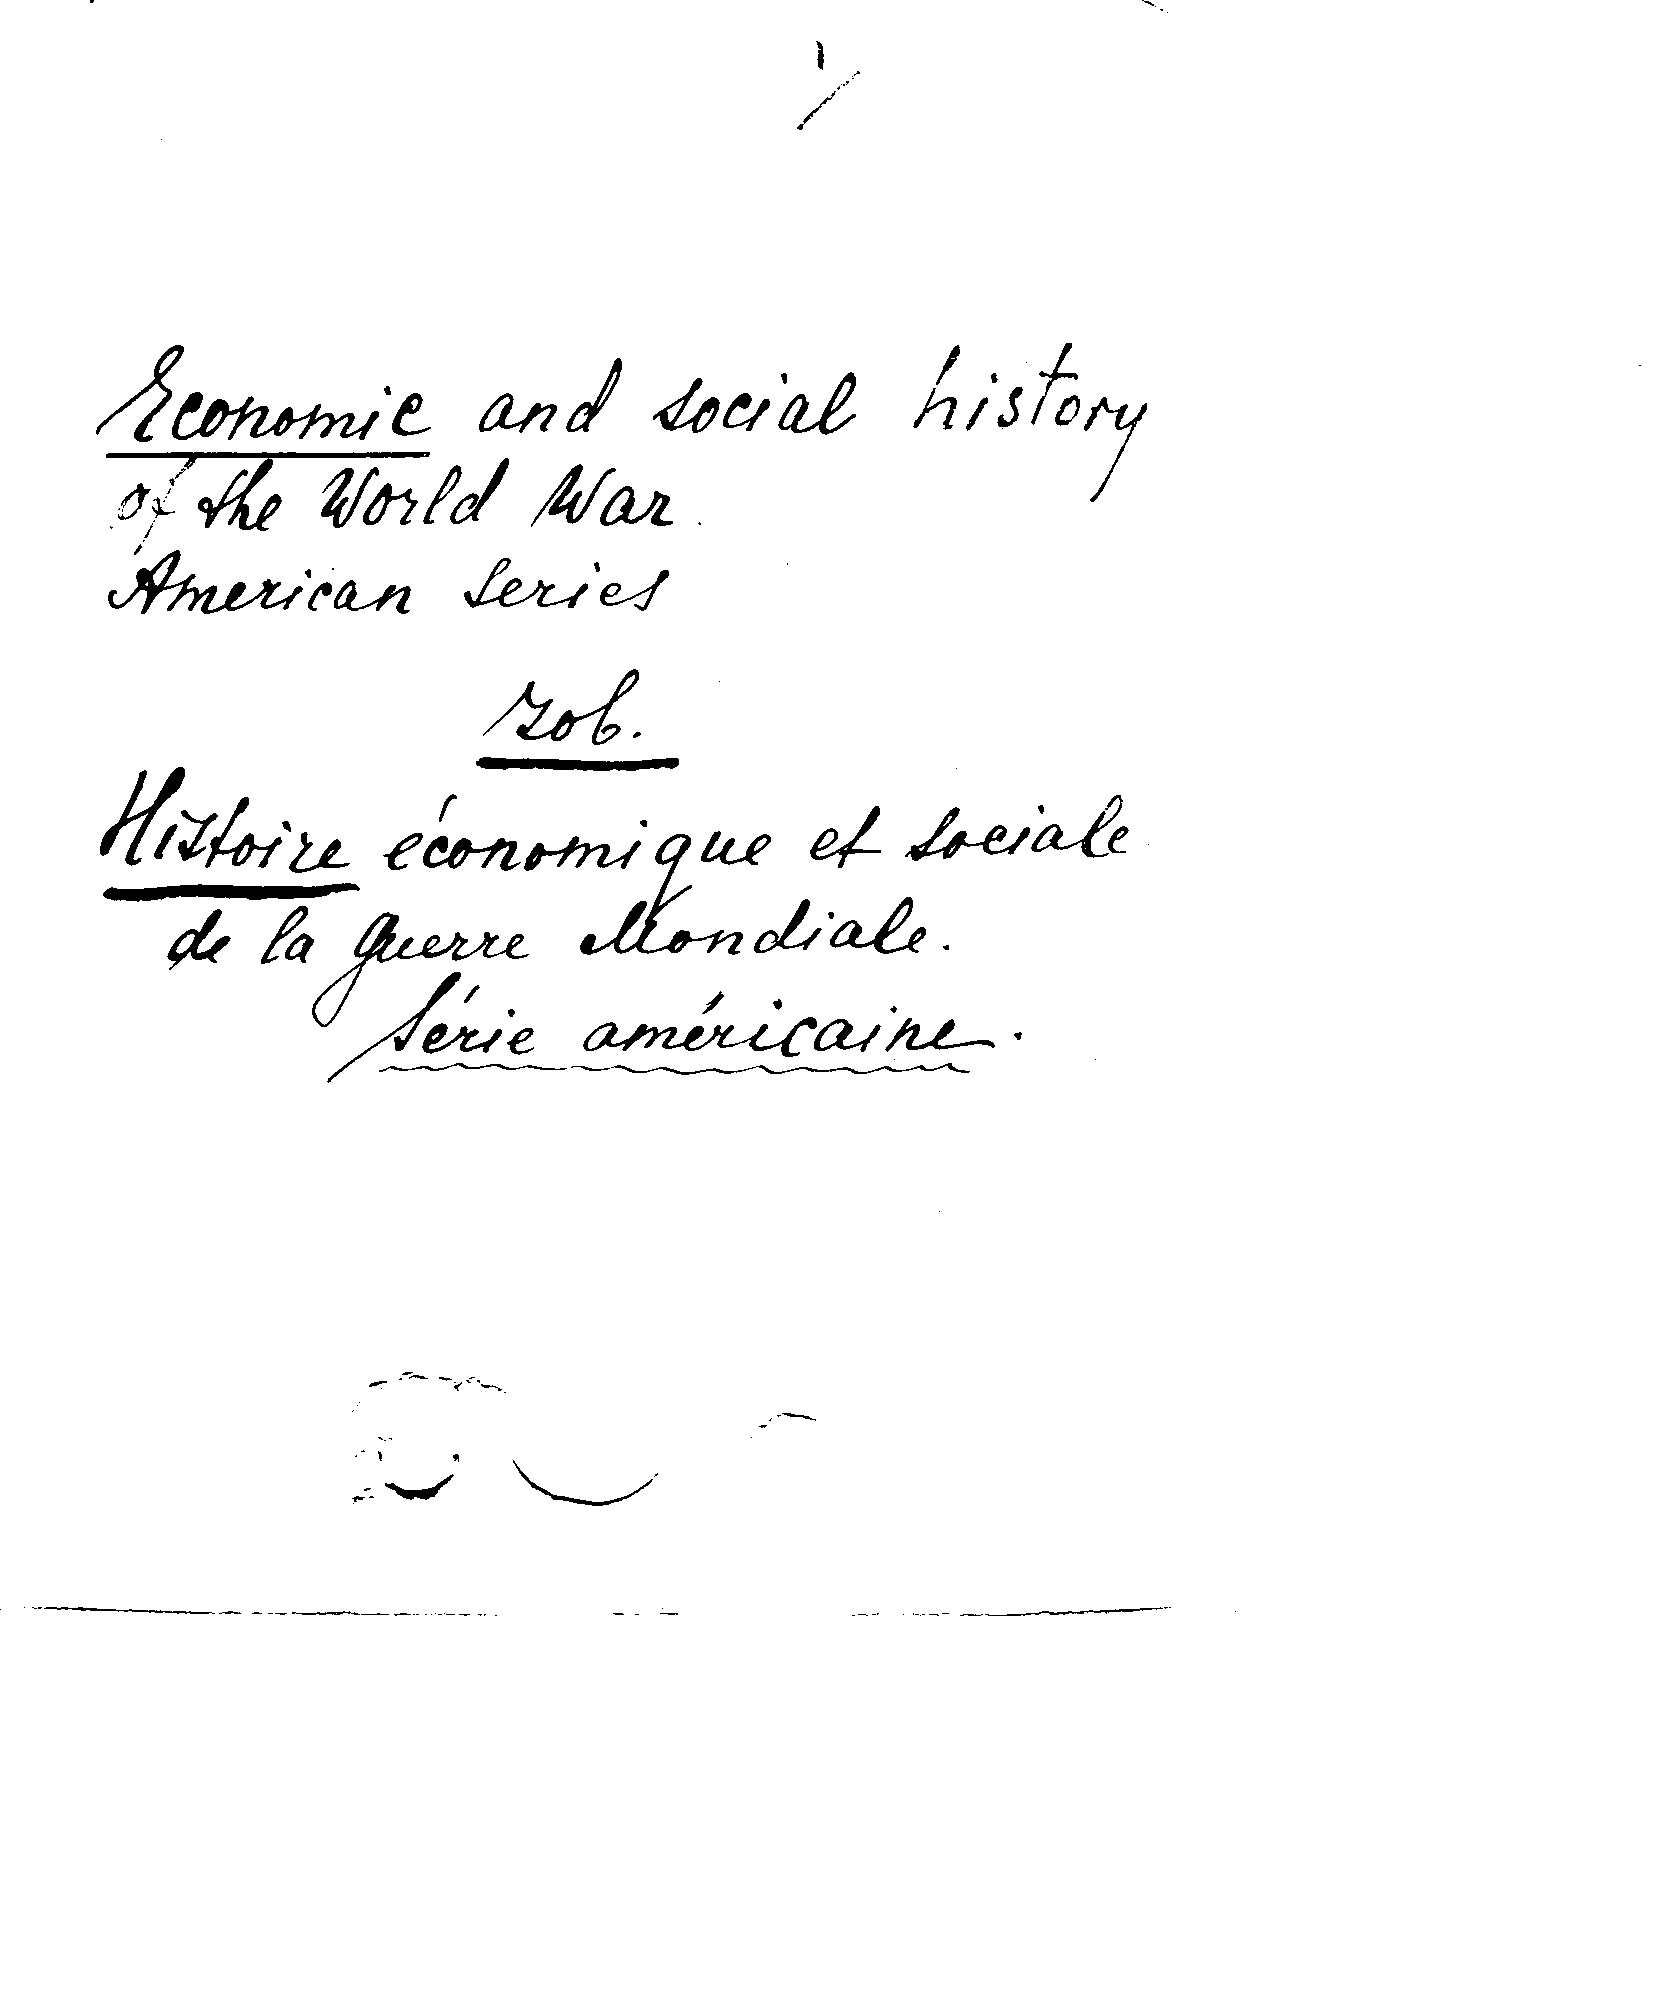 Economic and social history
of the World War
American series
zob.
Histoire économique et sociale
de la guerre Mondiale.
Série américaine.